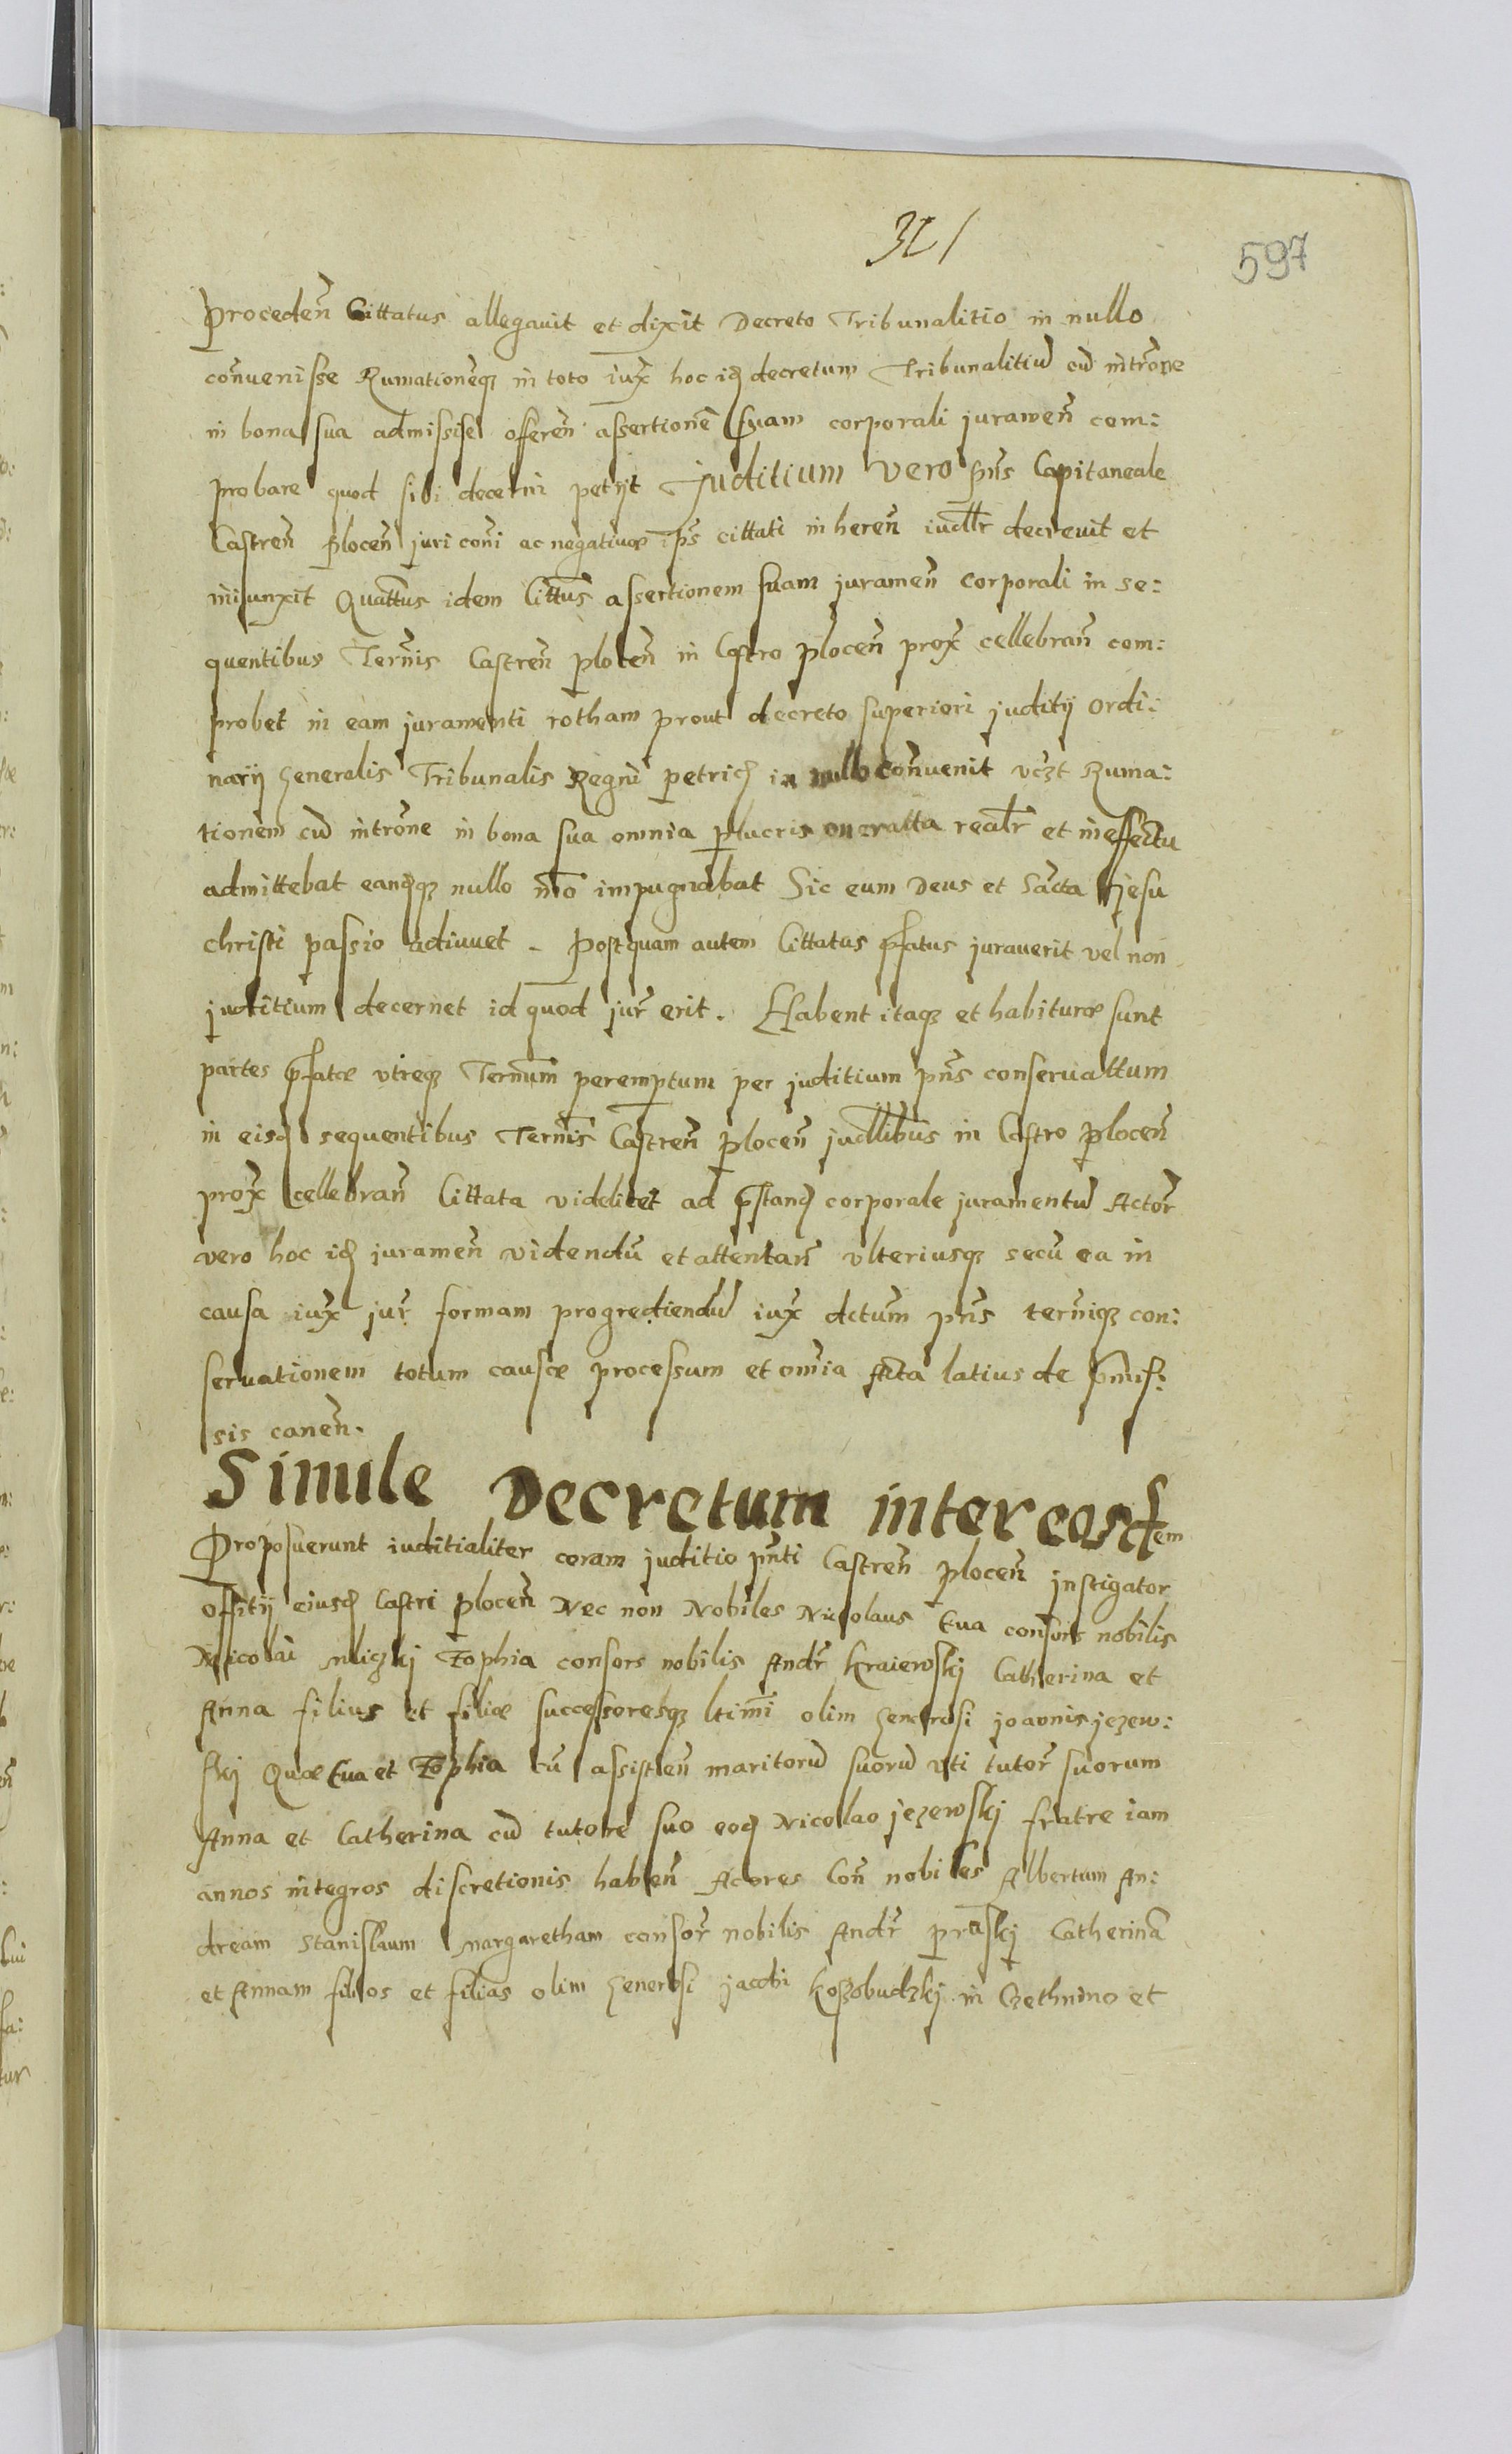 321
597
proceden̄ Cittatus allegauit et dixit Decreto Tribunalitio in nullo
conuenisse Rumationemq₃ in toto iux̄ hoc id decretum Tribunalitiū cū intrōne
in bona sua admissise oferen̄ assertionē suam corporali juramen̄ com:
probare quod sibi decerni petyt Juditium vero pn̄s Capitaneale
Castren̄ plocen̄ juri com̄i ac negatiuæ ip̄s cittati in heren̄ iudllr decreuit et
iniunxit Quattūs idem Cittūs assertionem suam juramen̄ corporali in se:
quentibus Termīs Castren̄ plocen̄ in Castro plocen̄ prox̄ cellebran̄ com:
probet in eam juramenti rotham prout decreto superiori juditij ordi:
narij generalis Tribunalis Regni petric in nullo conuenit vczt Ruma:
tionem cū intrōne in bona sua omnia plucris oneratta realr̄ et in effectu
admittebat eandq₃ nullo m̄o impugnabat Sic eum Deus et Sācta Jesu
christi passio adiuuet . Postquam autem Cittatus p̄fatus jurauerit vel non
juditium decernet id quod jur̄ erit . Habent itaq₃ et habituræ sunt
partes p̄fatæ vtreq₃ Termūm peremptum per juditium pn̄s conseruattum
in eisd sequentibus Termīs Castren̄ plocen̄ judllibus in Castro plocen̄
prox̄ cellebran̄ Cittata videlicet ad p̄stand corporale juramentū Actor̄
vero hoc id juramen̄ videndū et attentan̄ vlteriusq₃ secū ea in
causa iux̄ jur̄ formam progrediendū iux̄ dctum̄ pn̄s termīq₃ con:
seruationem totum causæ processum et omīa Acta latius de p̄mis:
sis canen̄.
Simile Decretum inter eosdem
Proposuerunt iuditialiter coram juditio pn̄ti Castren̄ plocen̄ jnstigator
offitij eiusd Castri plocen̄ Nec non Nobiles Nicolaus Eua consors nobilis
Nicolai Zophia consors nobilis Andr̄ Kraiewskj Catherina et
Anna filius et filiæ successoresq₃ ltimī olim generosi joannis jezew:
skj Quæ Eua et Zophia cū assisten̄ maritorū suorū vti tutor̄ suorum
Anna et Catherina cū tutore suo eod Nicolao jezewskj fratre iam
annos integros discretionis haben̄ Actores Con̄ nobiles Albertum An:
dream Stanislaum Margaretham consor̄ nobilis Andr̄ Catherinā
et Annam filios et filias olim generosi jacobi Kossobudzkj in Czethnino et